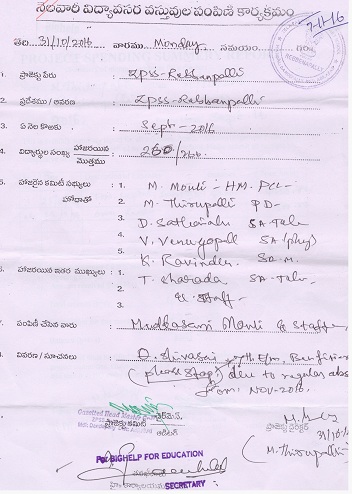 నెలవారి విద్యావసర వస్తువుల పంపిణి కార్యక్రమం
తేది. 31/10/2016 వారము Monday సమయం గం.
1. ప్రాజెక్టు పేరు : Zpss-Rebbanpalli
2. ప్రదేశము / ఆవరణ : Zpss-Rebbanpalli
3. ఏ నెల కొరకు : Sept-2016
4. విద్యార్థుల సంఖ్య హాజరైన మొత్తము : 260/266
5. హాజరైన కమిటీ సభ్యులు హోదాతో : 1. M. Mouli - HM. PCL-
2. M. Thirupalli PD-
3. D. SA-Telu
4. V. Venugopal SA (phy)
5. K. Ravinder SA-M.
6. హాజరయిన ఇతర ముఖ్యులు : 1. T. Sharada SA-Telu-
2. & Staff-
3.
7. పంపిణీ చేసిన వారు : Mouli & Staff
8. వివరణ / సూచనలు : D. Shivasai 7th E/m,
(please stop) due to regular abs
from: NOV-2016.
Gazetted Head Master
ప్రాజెక్టు కమిటీ
ప్రాజెక్టు డైరెక్టర్
31/10/16
(M.Thirupalli)
For BIGHELP FOR EDUCATION
SECRETARY